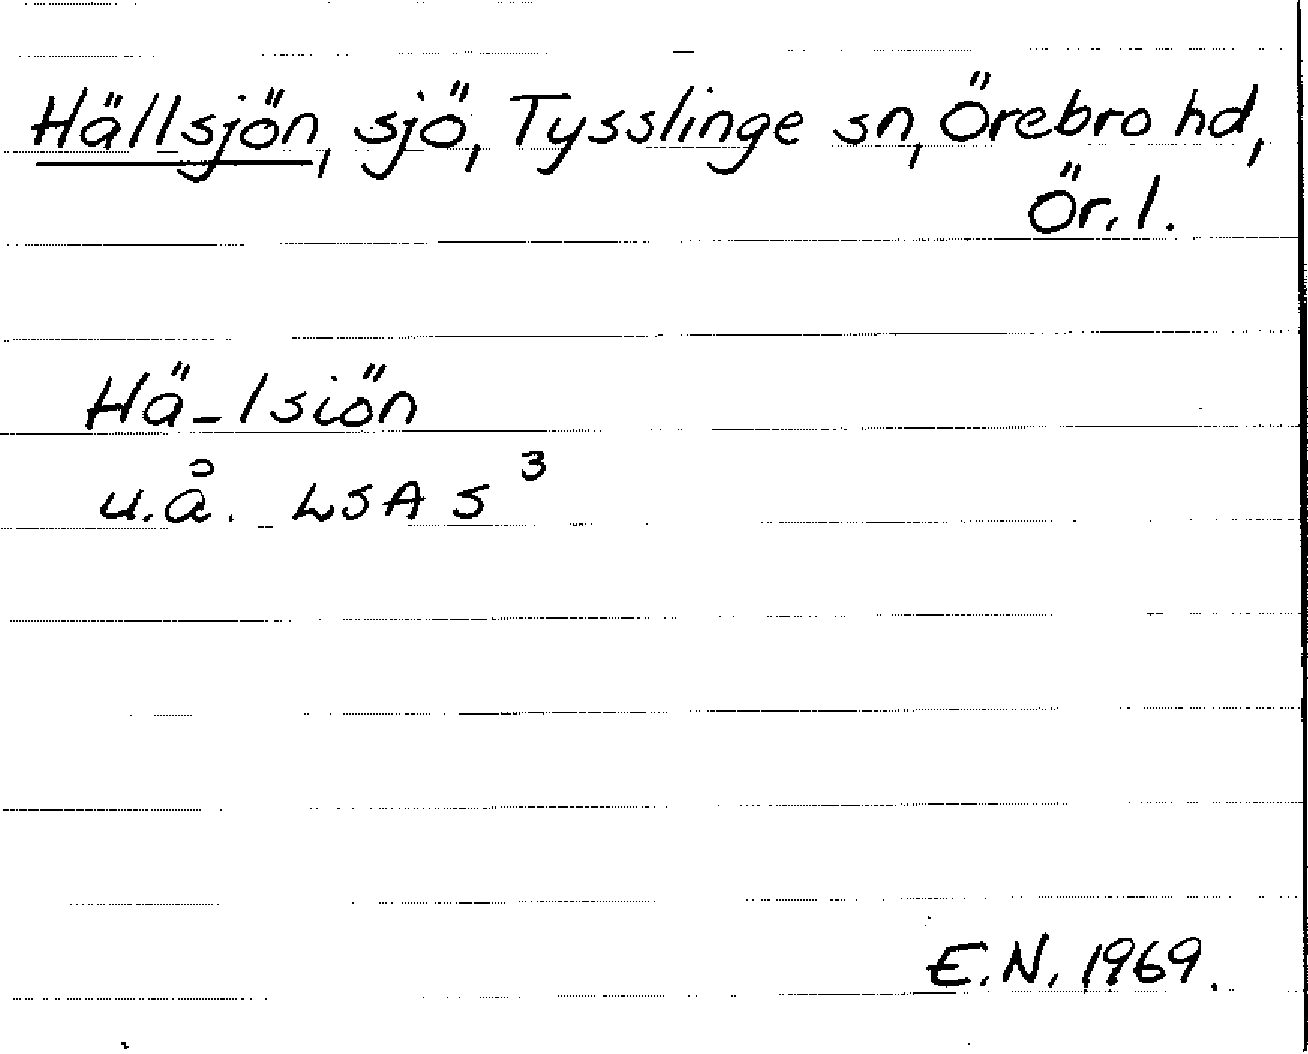 Hällsjön, sjö, Tysslinge sn, Örebro hd,
Ör. l.
Hä-lsiön
u.å. LSA S 3
E.N. 1969.